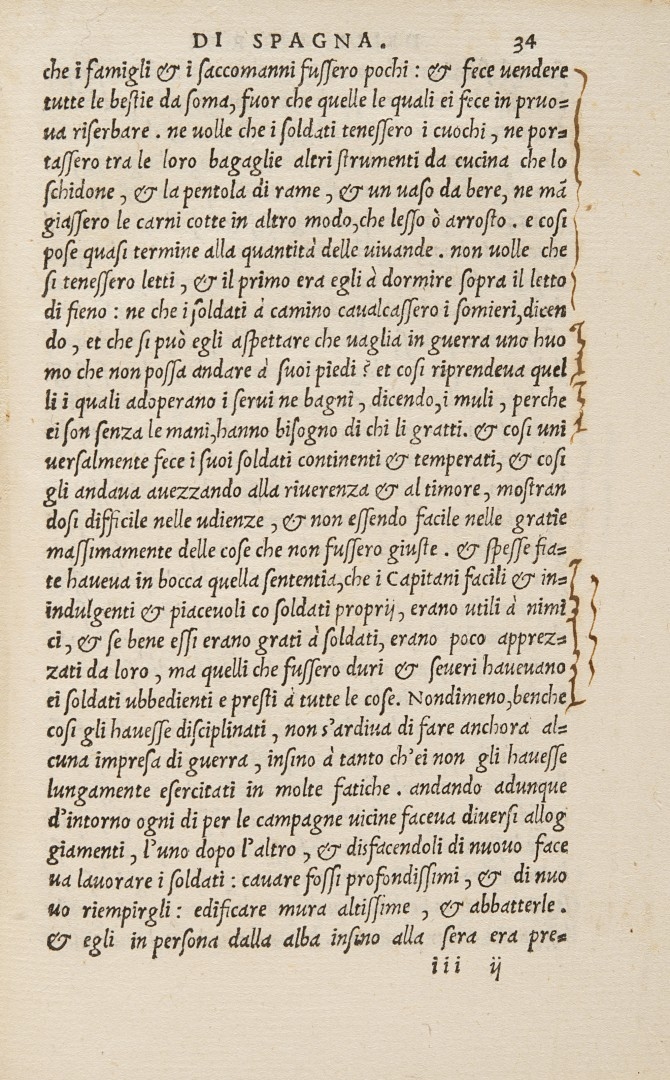 DI SPAGNA. 34
che i famigli & i saccomanni fussero pochi : & fece uendere
tutte le bestie da soma, fuor che quelle le quali ei fece in pruo=
ua riserbare . ne uolle che i soldati tenessero i cuochi , ne por=
tassero tra le loro bagaglie altri strumenti da cucina che lo
schidone , & la pentola di rame , & un uaso da bere, ne mã
giassero le carni cotte in altro modo,che lesso ò arrosto . e cosi
pose quasi termine alla quantità delle uiuande . non uolle che
si tenessero letti , & il primo era egli à dormire sopra il letto
di fieno : ne che i soldati à camino caualcassero i somieri,dicen
do , et che si può egli aspettare che uaglia in guerra uno huo
mo che non possa andare à suoi piedi ? et cosi riprendeua quel
li i quali adoperano i serui ne bagni , dicendo,i muli , perche
ei son senza le mani,hanno bisogno di chi li gratti. & cosi uni
uersalmente fece i suoi soldati continenti & temperati, & cosi
gli andaua auezzando alla riuerenza & al timore , mostran
dosi difficile nelle udienze , & non essendo facile nelle gratie
massimamente delle cose che non fussero giuste . & spesse fia=
te haueua in bocca quella sententia,che i Capitani facili & in=
indulgenti & piaceuoli co soldati proprij , erano utili à nimi
ci , & se bene essi erano grati à soldati, erano poco apprez=
zati da loro , ma quelli che fussero duri & seueri haueuano
ei soldati ubbedienti e presti à tutte le cose. Nondimeno,benche
cosi gli hauesse disciplinati , non s'ardiua di fare anchora al=
cuna impresa di guerra , insino à tanto ch'ei non gli hauesse
lungamente esercitati in molte fatiche . andando adunque
d'intorno ogni di per le campagne uicine faceua diuersi allog
giamenti , l'uno dopo l'altro , & disfacendoli di nuouo face
ua lauorare i soldati : cauare fossi profondissimi , & di nuo
uo riempirgli : edificare mura altissime , & abbatterle .
& egli in persona dalla alba insino alla sera era pre=
iii ij